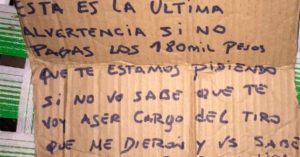 ESTA ES LA ULTIMA
ALVERTENCIA SI NO
PAGAS LOS 180MIL PESOS
QUE TE ESTAMOS PIDIENDO
SI NO VO SABE QUE TE
VOY ASER CARGO DEL TIRO
QUE ME DIERON Y VS SABE